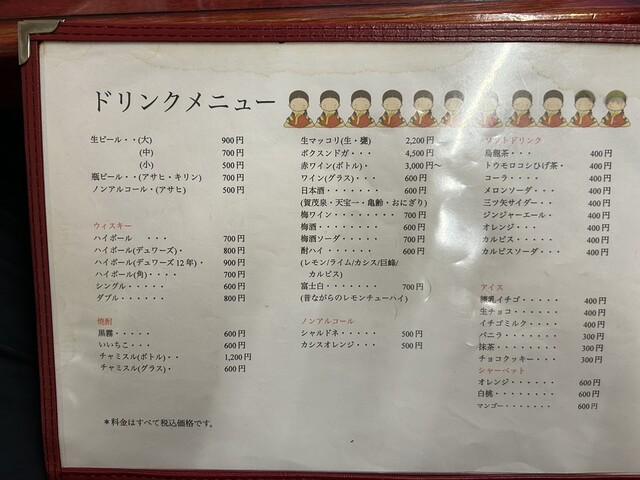 ドリンクメニュー
生ビール・・(大) 900円
(中) 700円
(小) 500円
瓶ビール・・(アサヒ・キリン) 700円
ノンアルコール・(アサヒ) 500円
ウィスキー
ハイボール ・・・ 700円
ハイボール(デュワーズ)・ 800円
ハイボール(デュワーズ12年)・ 900円
ハイボール(角)・・・・ 700円
シングル・・・・・ 600円
ダブル・・・・・・ 800円
焼酎
黒霧・・・・・ 600円
いいちこ・・・ 600円
チャミスル(ボトル)・・ 1,200円
チャミスル(グラス)・ 600円
*料金はすべて税込価格です。
生マッコリ(生・甕) 2,200円
ボクスンドガ・・・ 4,500円
赤ワイン(ボトル)・ 3,000円~
ワイン(グラス)・・・ 600円
日本酒・・・・・・・ 600円
(賀茂泉・天宝一・亀齢・おにぎり)
梅ワイン・・・・・・・・ 700円
梅酒・・・・・・・ 600円
梅酒ソーダ・・・・・ 700円
酎ハイ ・・・・・・ 600円
(レモン/ライム/カシス/巨峰/
カルピス)
富士白・・・・・・・ 700円
(昔ながらのレモンチューハイ)
ノンアルコール
シャルドネ・・・・・ 500円
カシスオレンジ・・・ 500円
ソフトドリンク
烏龍茶・・・ 400円
トウモロコシひげ茶・ 400円
コーラ・・・・ 400円
メロンソーダ・・・ 400円
三ツ矢サイダー・・ 400円
ジンジャーエール・ 400円
オレンジ・・・ 400円
カルピス・・・・・ 400円
カルピスソーダ・・・ 400円
アイス
練乳イチゴ・・・・・ 400円
生チョコ・・・・・ 400円
イチゴミルク・・・・ 400円
バニラ・・・・・・・ 300円
抹茶・・・・・・・・ 300円
チョコクッキー・・・ 300円
シャーベット
オレンジ・・・・・・・ 600円
白桃・・・・・・・・ 600円
マンゴー・・・・・・・ 600円